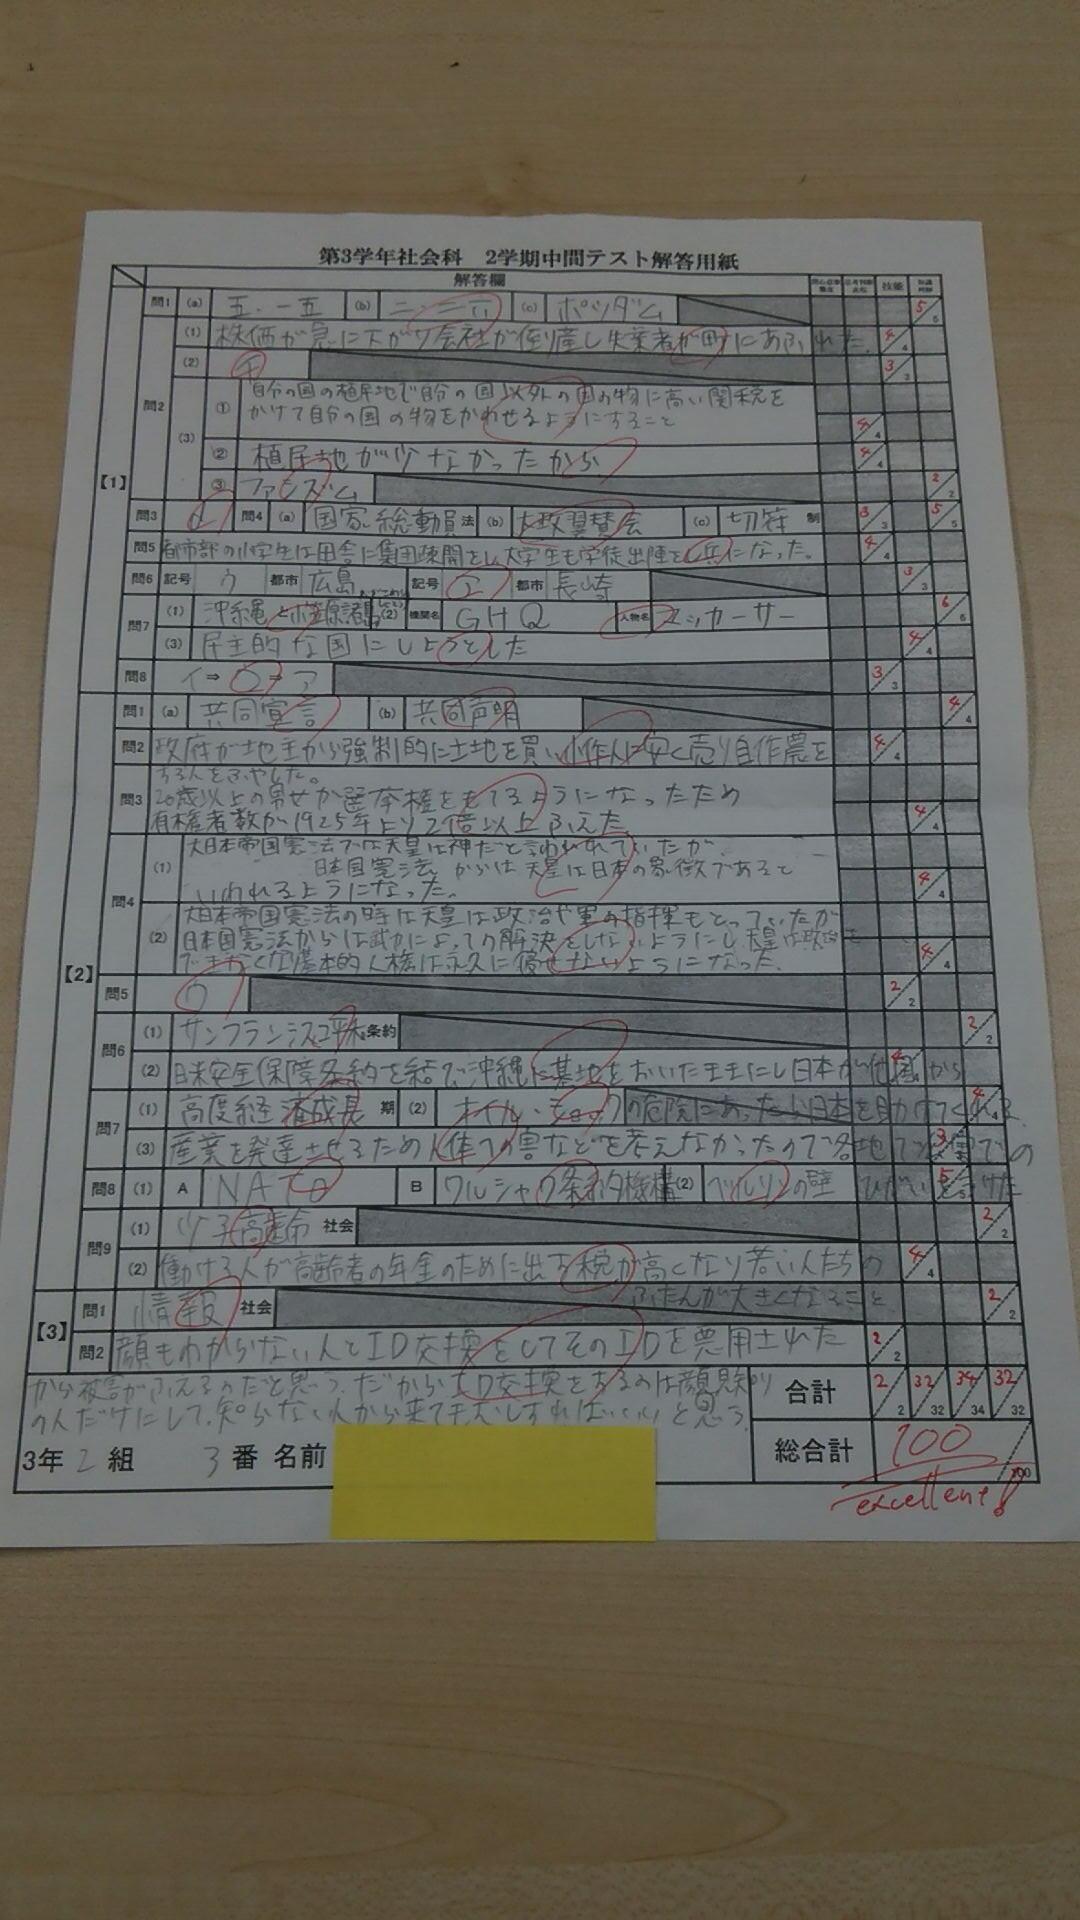 第3学年社会科 2学期中間テスト解答用紙
解答欄 技能
【1】
問1 (a) 五・一五 (b) 二・二六 (c) ポツダム 5/5
問2 (1) 株価が急に下がり会社が倒産し失業者が町にあふれた。 4/4
(2) 3/3
(3) ① 自分の国の植民地で自分の国以外の国の物に高い関税を
かけて自分の国の物をかわせるようにすること 4/4
② 植民地が少なかったから 4/4
③ ファシズム 2/2
問3 3/3 問4 (a) 国家総動員 法 (b) 大政翼賛会 (c) 切符 制 5/5
問5 都市部の小学生は田舎に集団疎開をし、大学生も学徒出陣をし兵になった。 4/4
問6 記号 ウ 都市 広島 記号 エ 都市 長崎 3/3
問7 (1) 沖縄と小笠原諸島 (2) 機関名 GHQ 人物名 マッカーサー 6/6
(3) 民主的な国にしようとした 4/4
問8 イ⇒ウ⇒ア 3/3
【2】
問1 (a) 共同宣言 (b) 共同声明 4/4
問2 政府が地主から強制的に土地を買い小作人に安く売り自作農を 4/4
する人をふやした。
問3 20歳以上の男女が選挙権をもてるようになったため
有権者数が1925年より2倍以上ふえた 4/4
問4 (1) 大日本帝国憲法では天皇は神だと言われれていたが
日本国憲法からは天皇は日本の象徴であると
いわれるようになった。 4/4
(2) 大日本帝国憲法の時は天皇は政治や軍の指揮もとっていたが
日本国憲法からは武力によっての解決をしないようにし、天皇は政治を
できなくなり基本的人権は永久に侵せないようになった。 4/4
問5 ウ 2/2
問6 (1) サンフランシスコ平和 条約 2/2
(2) 日米安全保障条約を結び沖縄に基地をおいたままにし日本が他国から
の危険にあったら日本を助けてくれる 4/4
問7 (1) 高度経済成長 期 (2) オイル・ショック 4/4
(3) 産業を発達させるため人体への害などを考えなかったので各地で
ひがいをうけた 3
問8 (1) A NATO B ワルシャワ条約機構 (2) ベルリンの壁 5/5
問9 (1) 少子高齢 社会 2/2
(2) 働ける人が高齢者の年金のために出す税が高くなり若い人たちの
ふたんが大きくなること 4/4
【3】
問1 情報 社会 2/2
問2 顔もわからない人とID交換をしてそのIDを悪用された 2/2
から被害がふえるのだと思う。だからID交換をするのは顔見知り
の人だけにして、知らない人から来てもむしすればいいと思う。
合計 2/2 32/32 34/34 32/32
総合計 100/100
excellent!
3年 2 組 3 番 名前